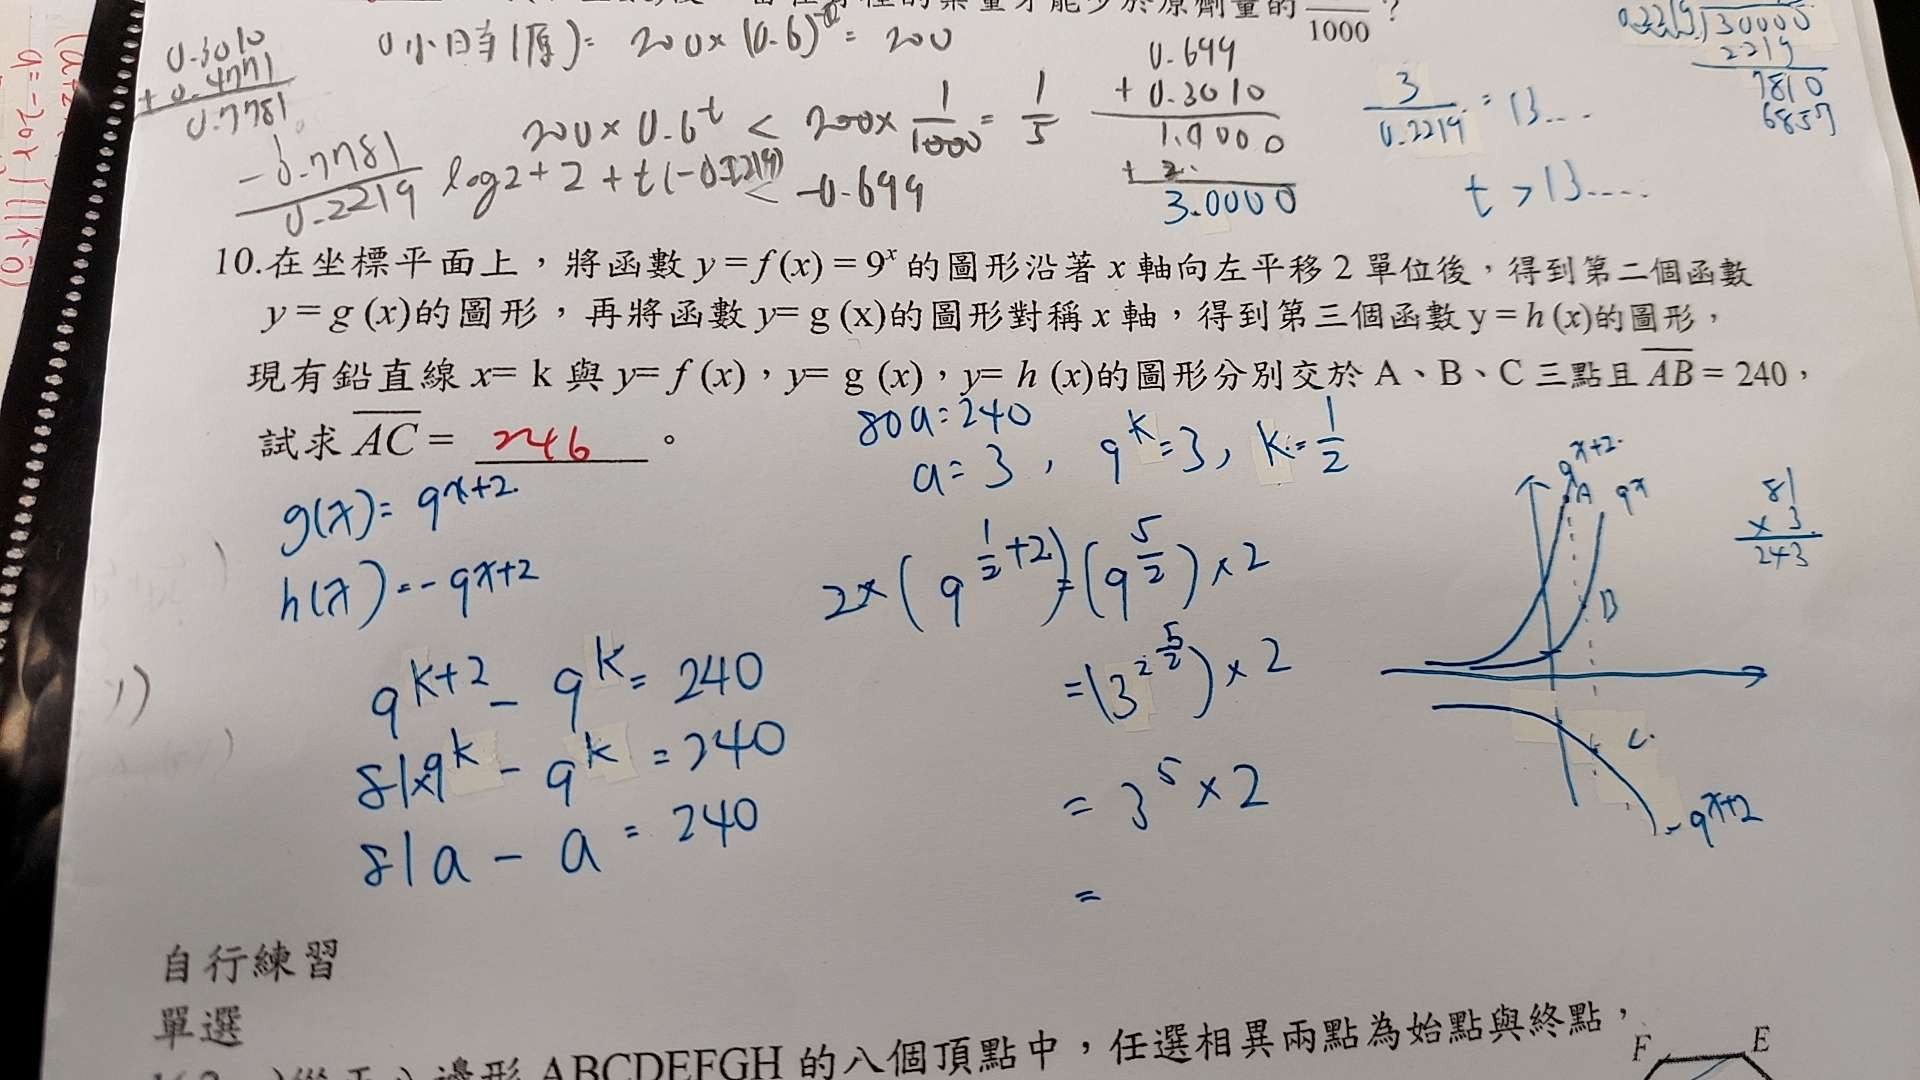 1000
0.3010
+ 0.4771
0.7781
200×
= 200
0.699
+ 0.3010
1.0000
+ 2.
3.0000
200 × 0.6^t < 200× 1/1000 = 1/5
3/0.2219 = 13....
t > 13.....
30000
2219
7810
6857
0.2219
log2 + 2 + t(-0.2219) < -0.699
10.在坐標平面上，將函數 y = f (x) = 9^x 的圖形沿著 x 軸向左平移 2 單位後，得到第二個函數
y = g (x)的圖形，再將函數 y= g (x)的圖形對稱 x 軸，得到第三個函數 y = h (x)的圖形，
現有鉛直線 x= k 與 y= f (x)，y= g (x)，y= h (x)的圖形分別交於 A、B、C 三點且 AB = 240，
試求 AC = 246 。
g(x)= 9^x+2
h(x)=-9^x+2
9^k+2 - 9^k = 240
81×9^k - 9^k = 240
81a - a = 240
80a=240
a= 3 , 9^k=3, k= 1/2
2×(9^1/2+2)=(9^5/2)×2
=(3^2^5/2)×2
= 3^5×2
=
9^x+2
A
9^x
B
C
-9^x+2
81
× 3
243
自行練習
單選
邊形 ABCDEFGH 的八個頂點中，任選相異兩點為始點與終點，
F
E